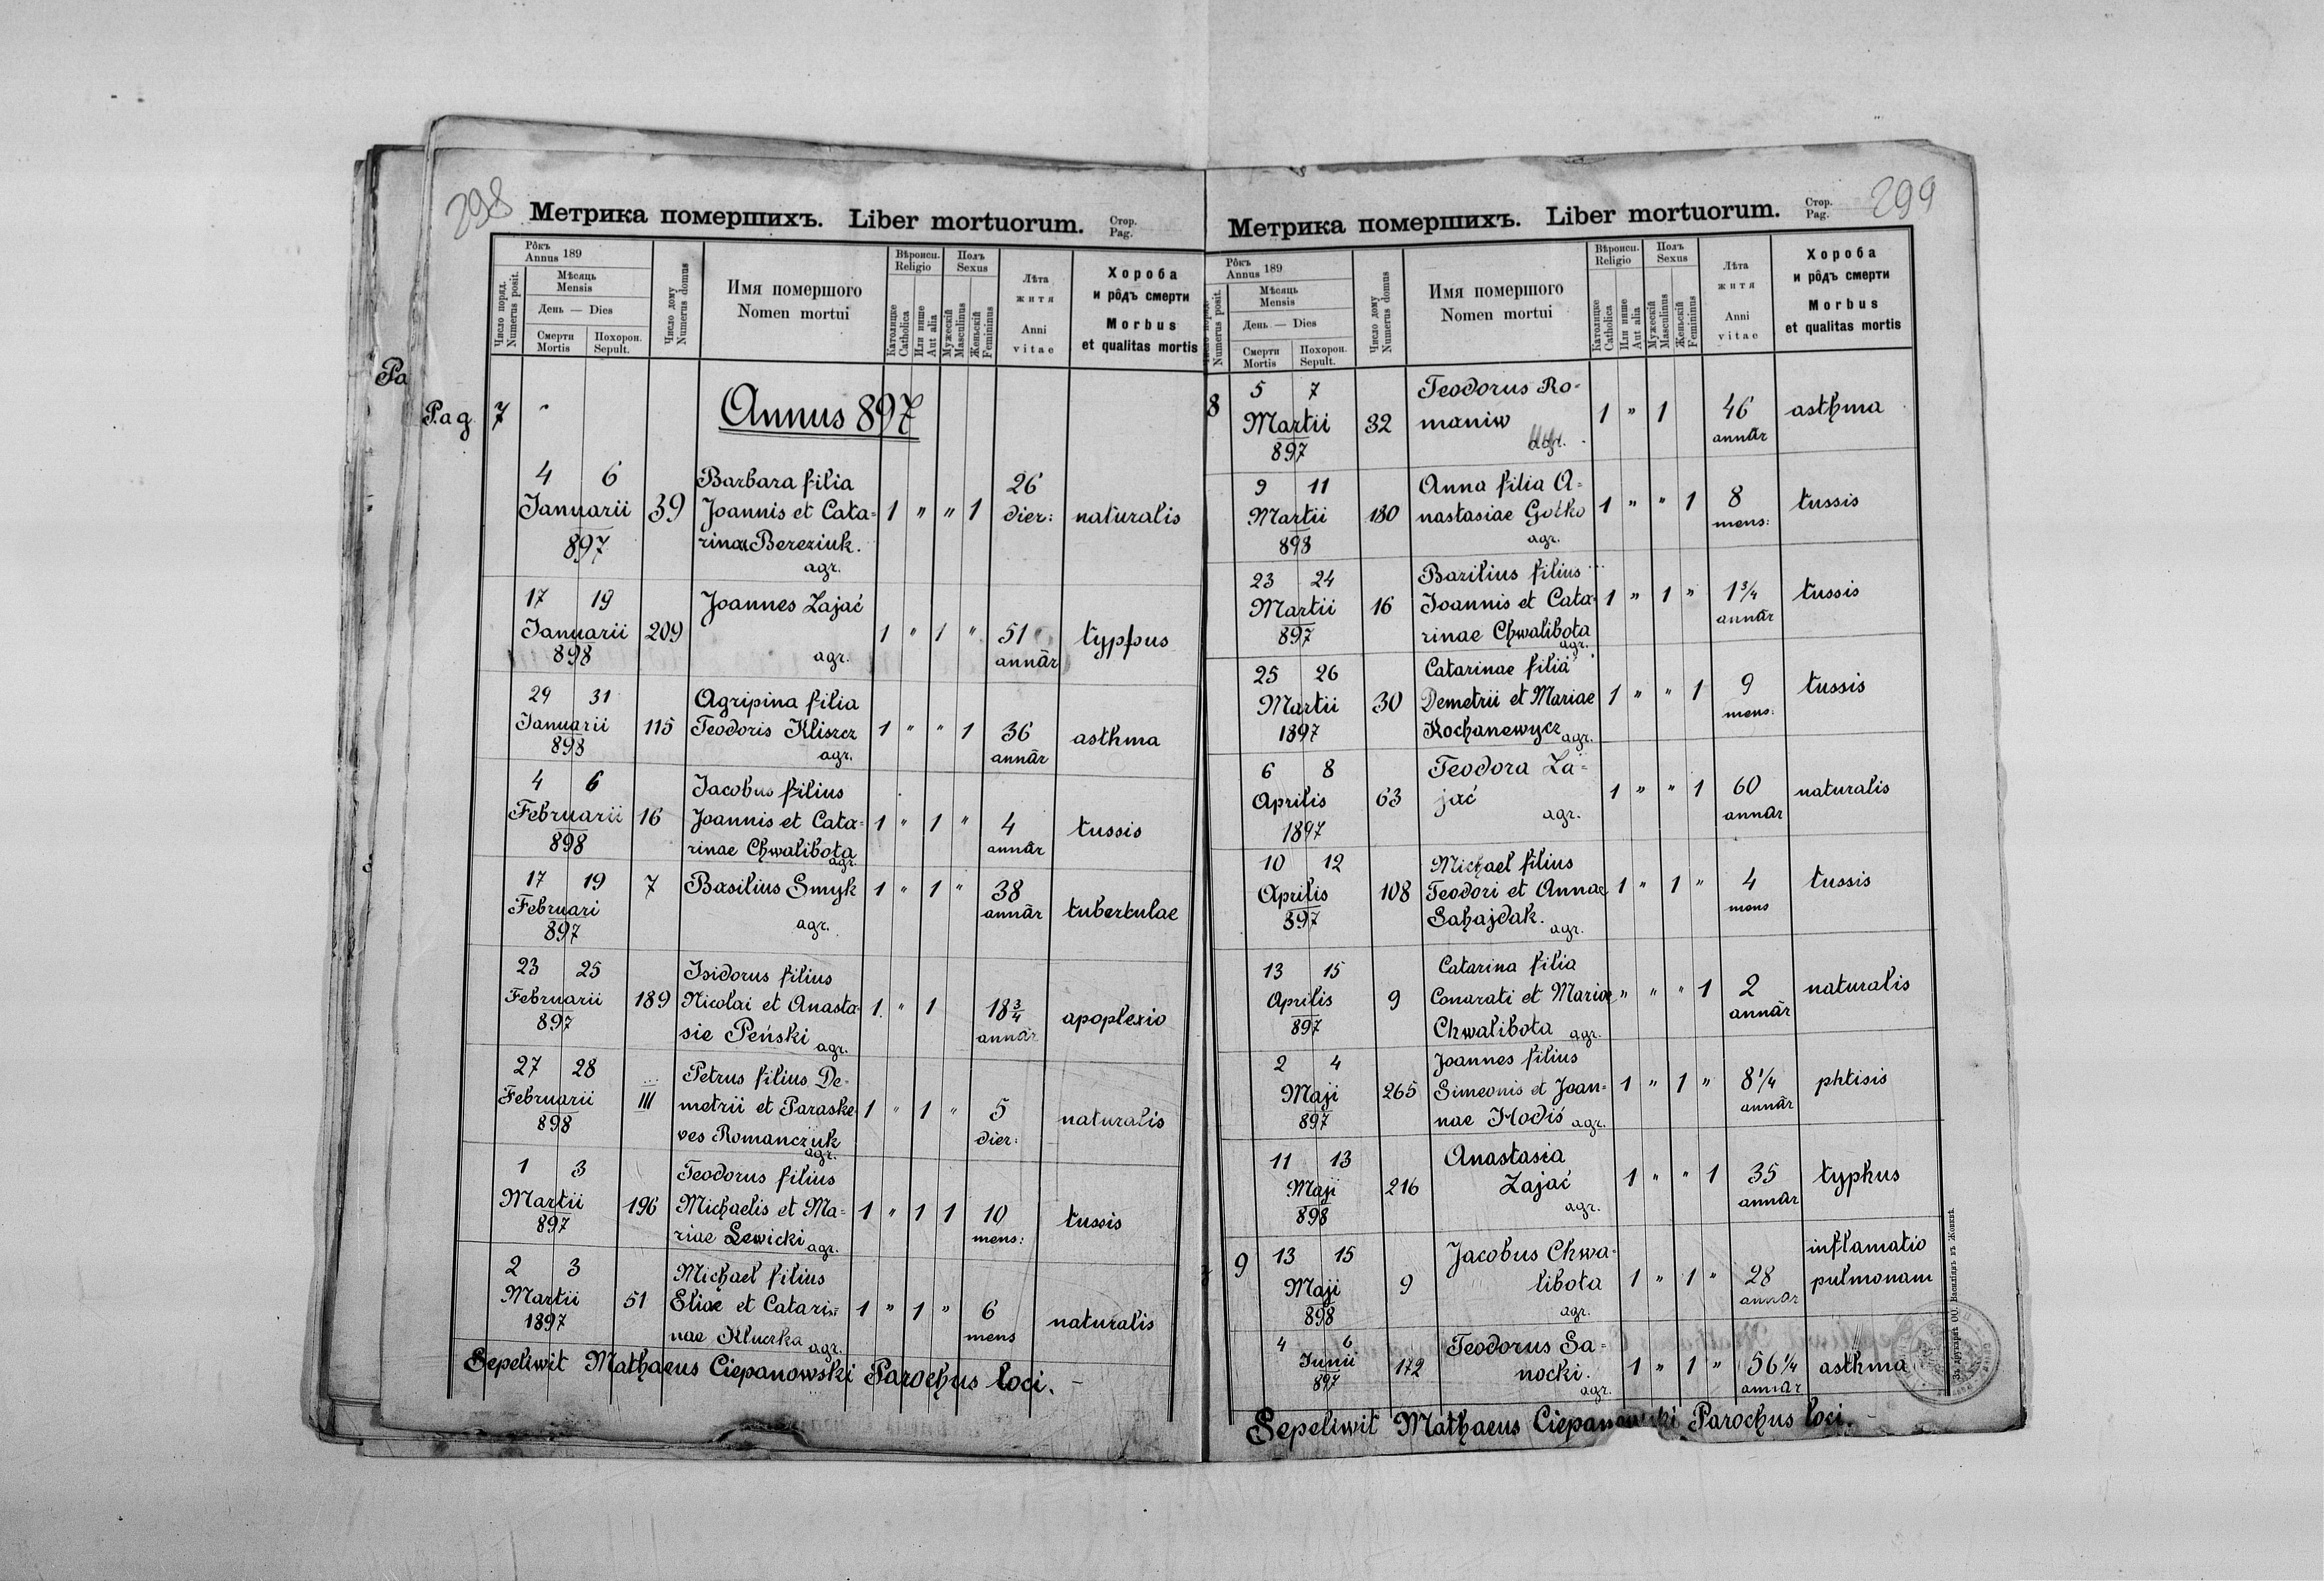 298
Метрика помершихъ. Liber mortuorum.
Стор.
Pag.
Рôкъ
Annus 189
Число поряд.
Numerus posit.
Мѣсяць
Mensis
День — Dies
Смерти
Mortis
Похорон.
Sepult.
Число дому
Numerus domus
Имя помершого
Nomen mortui
Вѣроисп.
Religio
Католицке
Catholica
Или инше
Aut alia
Полъ
Sexus
Мужескій
Masculinus
Женьскій
Femininus
Лѣта
житя
Anni
vitae
Хороба
и рôдъ смерти
Morbus
et qualitas mortis
Pa
Pag. 7
Annus 897
4 6 Barbara filia 26
Januarii 39 Joannis et Cata= 1 " " 1 dier: naturalis
897 rinae Bereziuk.
agr.
17 19 Joannes Zajać
Januarii 209 1 " 1 " 51 typfus
898 agr. annār
29 31 Agripina filia
Januarii 115 Teodoris Kliszcz 1 " " 1 36 asthma
898 agr. annār
4 6 Jacobus filius
Februarii 16 Joannis et Cata= 1 " 1 " 4 tussis
898 rinae Chwalibota annār
agr.
17 19 7 Basilius Smyk 1 " 1 " 38
Februari annār tubertulae
897 agr.
23 25 Isidorus filius
Februarii 189 Nicolai et Anasta= 1. " 1 18 3/4 apoplexio
897 sie Peński agr. annār
27 28 Petrus filius De=
Februarii III metrii et Paraske= 1 " 1 " 5 naturalis
898 ves Romanczuk dier:
agr.
1 3 Teodorus filius
Martii 196 Michaelis et Ma= 1 " 1 1 10 tussis
897 riae Lewicki agr. mens:
2 3 Michael filius
Martii 51 Eliae et Catari= 1 " 1 " 6 naturalis
1897 nae Kluczka agr. mens
Sepeliwit Mathaeus Ciepanowski Parochus loci.
299
Метрика помершихъ. Liber mortuorum.
Стор.
Pag.
Рôкъ
Annus 189
Numerus posit.
Мѣсяць
Mensis
День — Dies
Смерти
Mortis
Похорон.
Sepult.
Число дому
Numerus domus
Имя помершого
Nomen mortui
Вѣроисп.
Religio
Католицке
Catholica
Или инше
Aut alia
Полъ
Sexus
Мужескій
Masculinus
Женьскій
Femininus
Лѣта
житя
Anni
vitae
Хороба
и рôдъ смерти
Morbus
et qualitas mortis
8 5 7 Teodorus Ro=
Martii 32 maniw 1 " 1 46 asthma
897 agr. annār
9 11 Anna filia A=
Martii 180 nastasiae Gotko 1 " " 1 8 tussis
898 agr. mens:
23 24 Bazilius filius
Martii 16 Joannis et Cata= 1 " 1 " 1 3/4 tussis
897 rinae Chwalibota annār
agr.
25 26 Catarinae filia
Martii 30 Demetrii et Mariae 1 " " 1 9 tussis
1897 Kochanewycz agr. mens:
6 8 Teodora Za=
Aprilis 63 jać 1 " " 1 60 naturalis
1897 agr. annār
10 12 Michael filius
Aprilis 108 Teodori et Annae 1 " 1 " 4 tussis
897 Sahajdak. agr. mens
13 15 Catarina filia
Aprilis 9 Conarati et Mariae " " " 1 2 naturalis
897 Chwalibota agr. annār
2 4 Joannes filius
Maji 265 Simeonis et Joan= 1 " 1 " 8 1/4 phtisis
897 nae Hodiś agr. annār
11 13 Anastasia
Maji 216 Zajać 1 " " 1 35 typhus
898 agr. annār
9 13 15 Jacobus Chwa= inflamatio
Maji 9 libota 1 " 1 " 28 pulmonam
898 agr. annār
4 6 Teodorus Sa=
Junii 172 nocki. 1 " 1 " 56 1/4 asthma
897 agr. annār
Sepeliwit Mathaeus Ciepanowski Parochus loci.
Зъ друкарнѣ ОО. Василіянъ въ Жовквѣ.